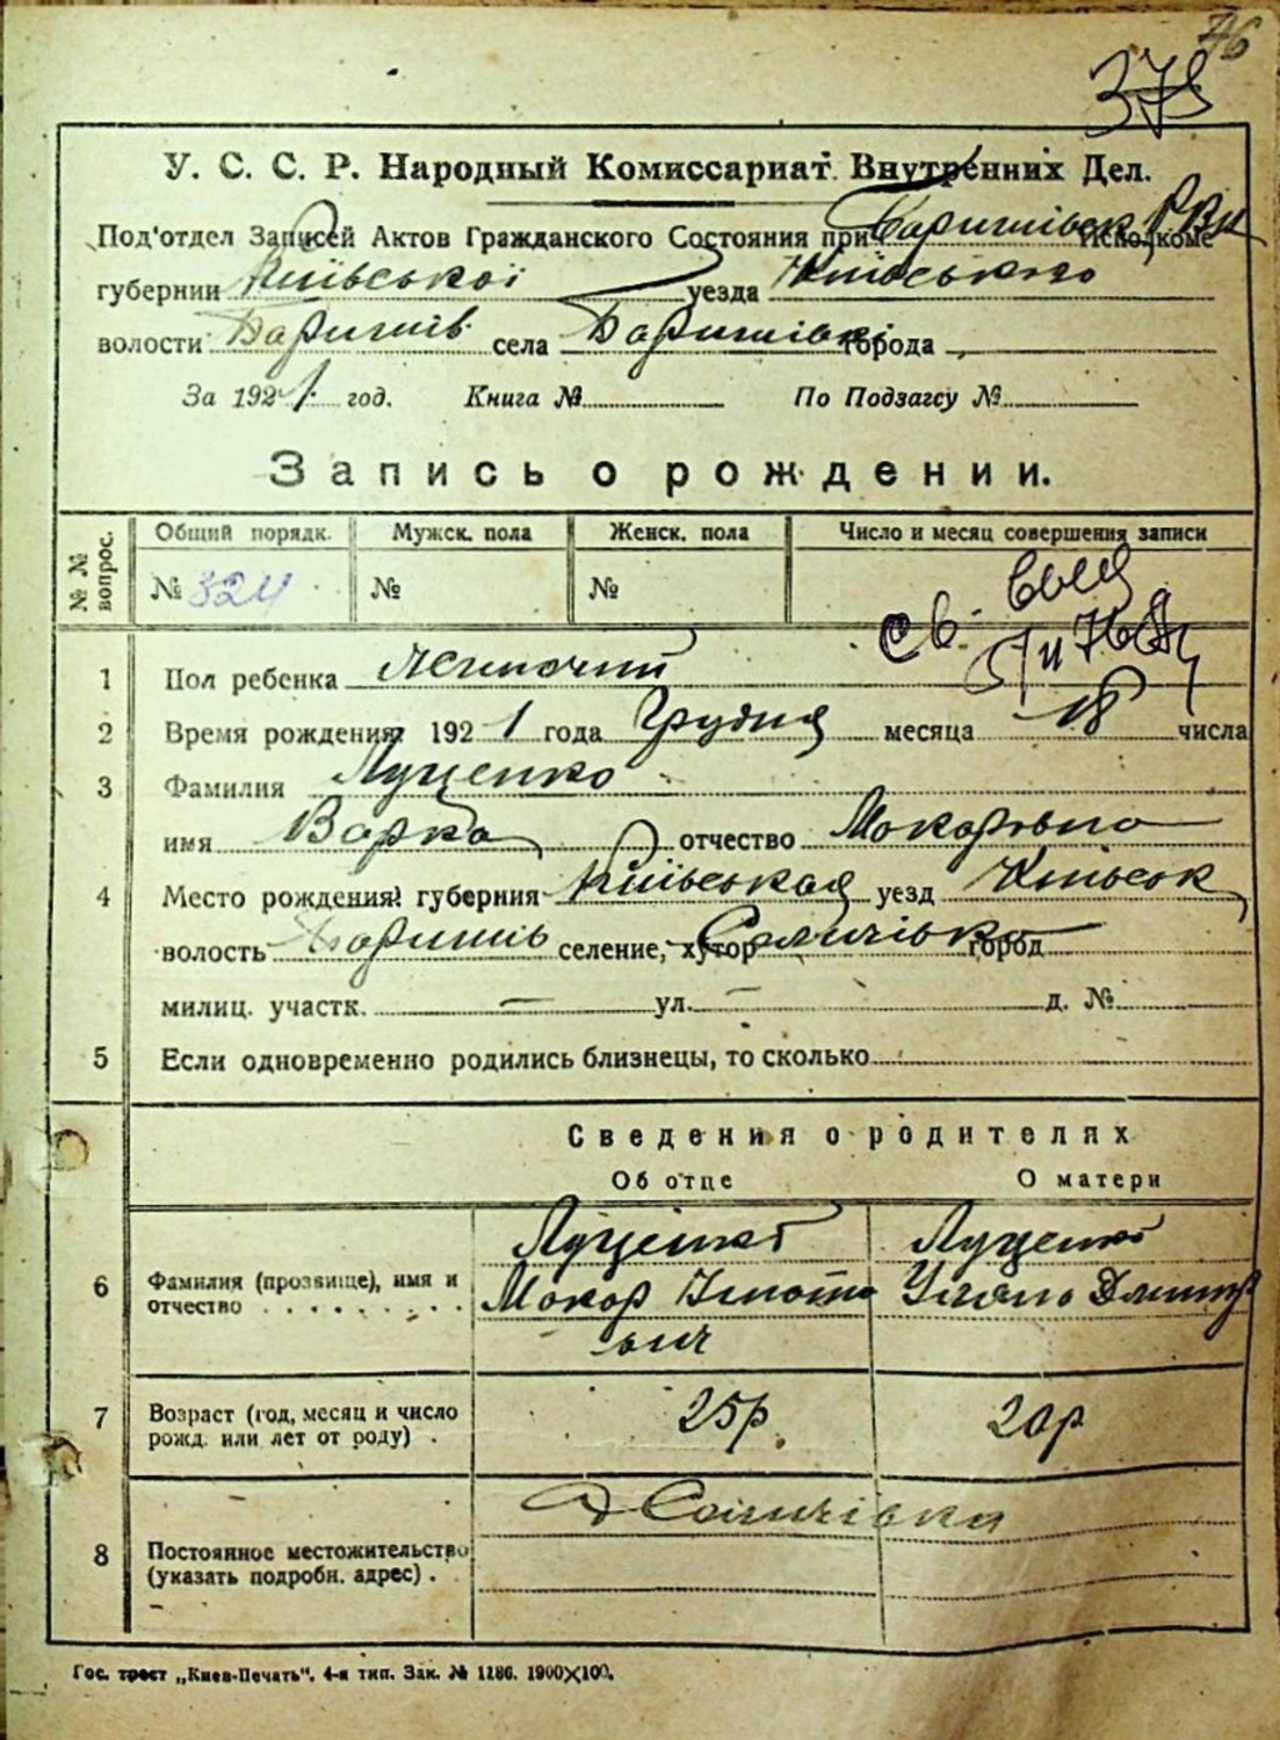 76
375
У. С. С. Р. Народный Комиссариат Внутренних Дел.
Под'отдел Записей Актов Гражданского Состояния при Баришівськ РВК Исполкоме
губернии Київської уезда Київського
волости Баришів села Баришівка города
За 1921 год. Книга № По Подзагсу №
Запись о рождении.
№ № вопрос.
Общий порядк. Мужск. пола Женск. пола Число и месяц совершения записи
№ 324 № №
св.
1 Пол ребенка Жиночий
2 Время рождения: 1921 года Грудня месяца 18 числа
3 Фамилия Луценко
имя Варка отчество Макаровна
4 Место рождения: губерния Київськая уезд Київськ
волость Баришів селение, хутор Селичівка город
милиц. участк. — ул. — д. №
5 Если одновременно родились близнецы, то сколько
Сведения о родителях
Об отце О матери
6 Фамилия (прозвище), имя и отчество
Луценко Луценко
Макар Игнатович Уляна Дмитр
7 Возраст (год, месяц и число рожд. или лет от роду) 25р. 20р
8 Постоянное местожительство (указать подробн. адрес) Селичівка
Гос. трест „Киев-Печать“. 4-я тип. Зак. № 1186. 1900×100.